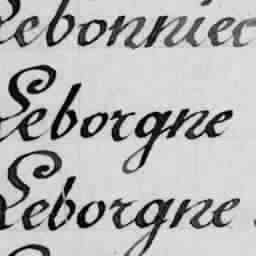 Lebonniec
Leborgne
Leborgne